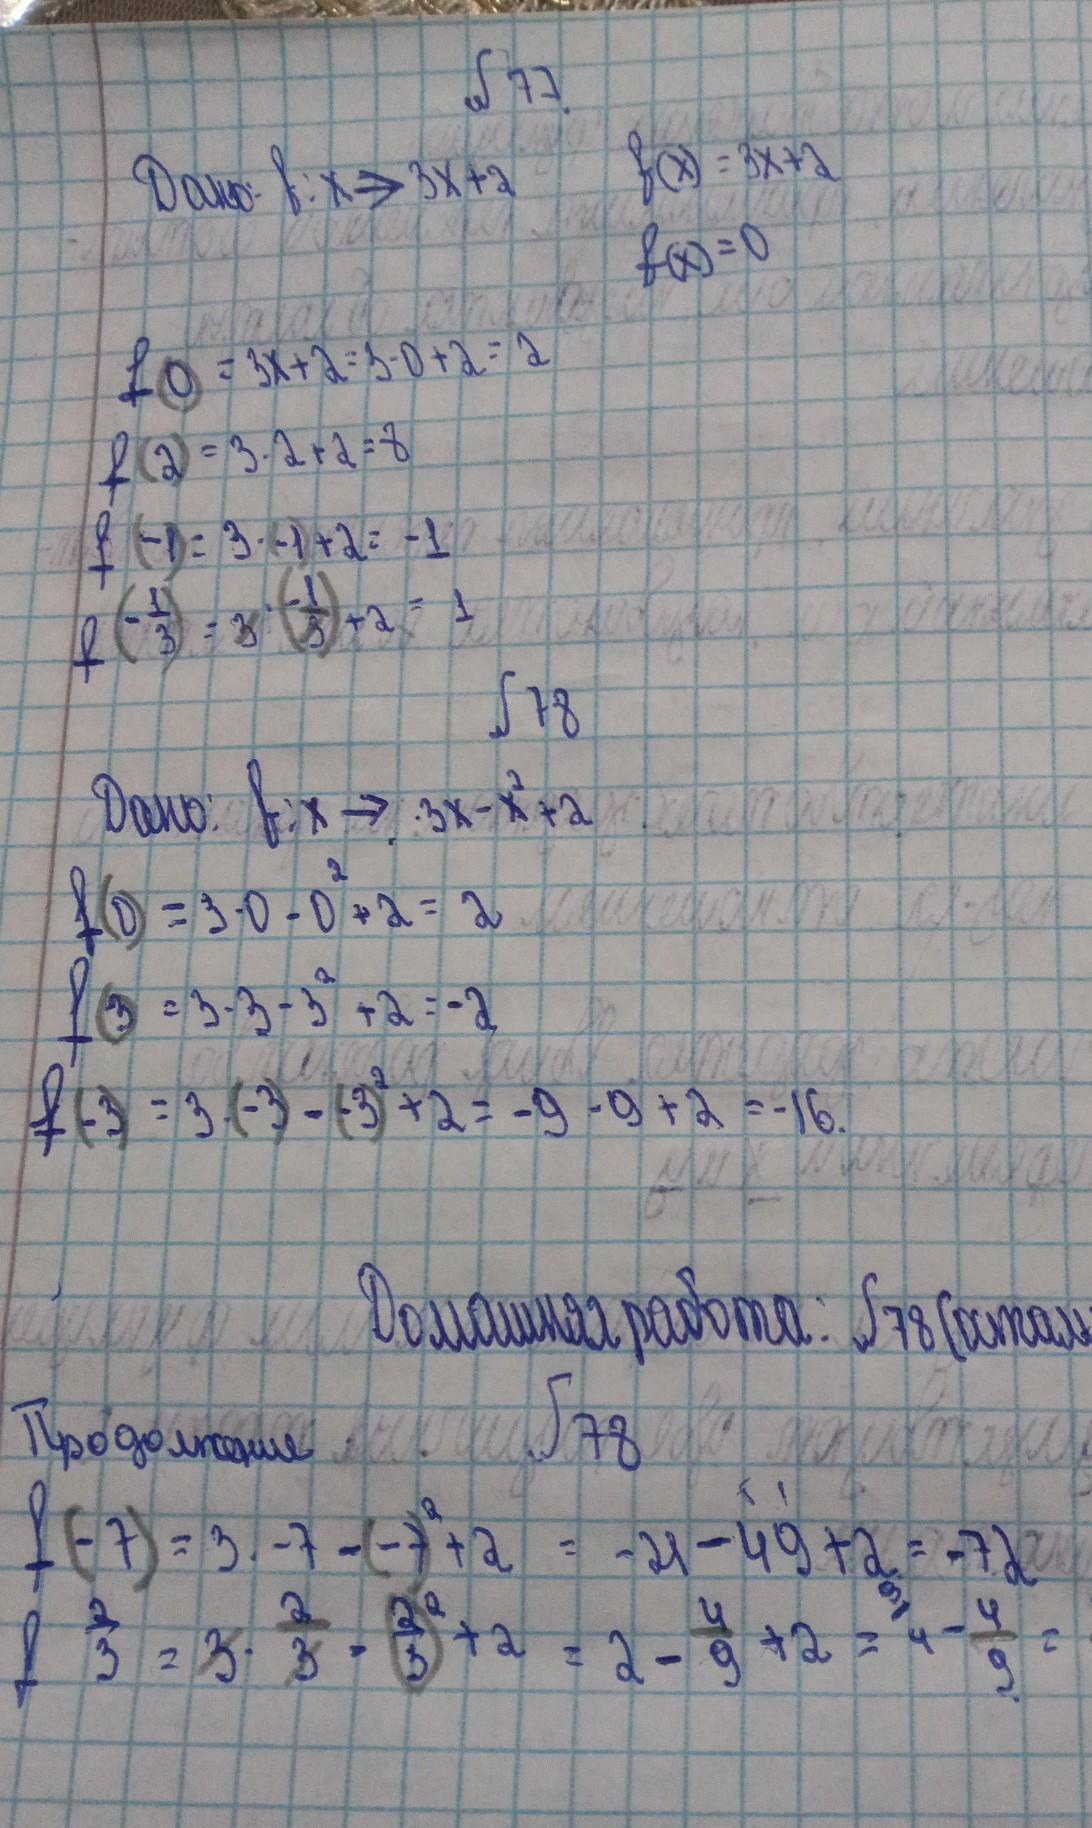 № 77.
Дано: f: x → 3x+2
f(x) = 3x+2
f(x) = 0
f(0) = 3x+2 = 3·0+2 = 2
f(2) = 3·2+2 = 8
f(-1) = 3·(-1)+2 = -1
f(-1/3) = 3·(-1/3)+2 = 1
№ 78
Дано: f: x → 3x-x²+2
f(0) = 3·0-0²+2 = 2
f(3) = 3·3-3²+2 = -2
f(-3) = 3·(-3)-(-3)²+2 = -9-9+2 = -16.
Домашняя работа: №78 (осталь
Продолжение № 78
f(-7) = 3·-7-(-7)²+2 = -21-49+2 = -72
f 2/3 = 3·2/3-(2/3)²+2 = 2-4/9+2 = 4-4/9 =